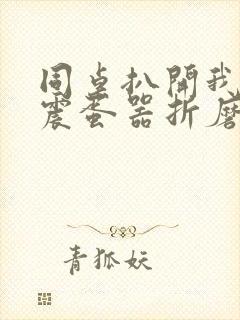 同桌扒開我
震蛋器折磨
青狐妖